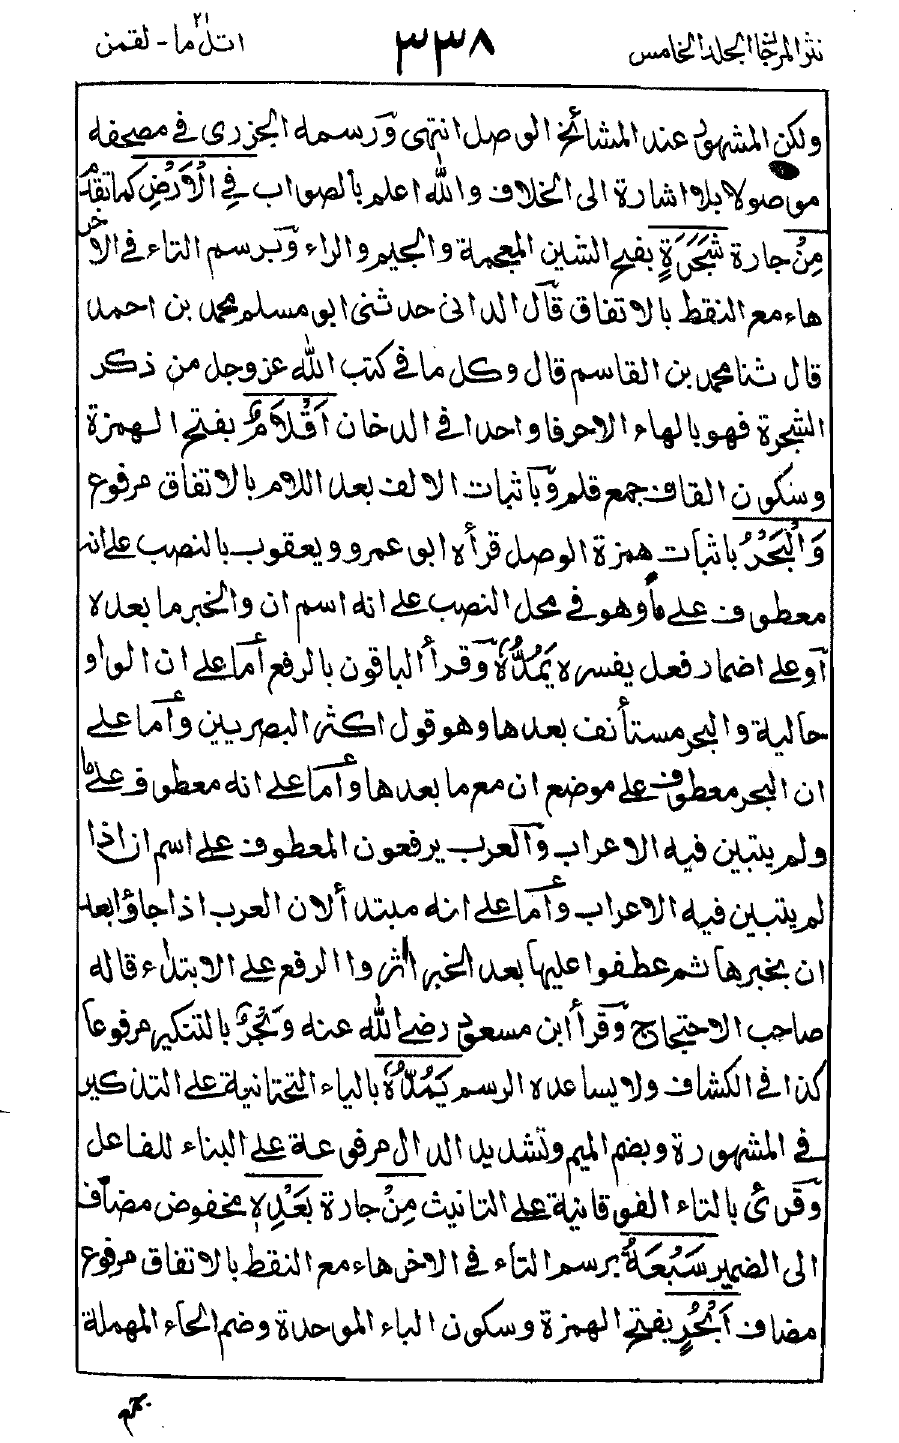 نثر المرجان المجلد الخامس ٣٣٨ اتل ما ٢١ - لقمن
ولكن المشهور عند المشائخ الوصل انتهى وَرسمه الجزرى فى مصحفه
موصولا بلا اشارة الى الخلاف والله اعلم بالصواب فِي الْاَرْضِ كما تقدم
مِنْ جارة شَجَرَةٍ بفتح الشين المعجمة والجيم والراء وَبرسم التاء فى الاخر
هاء مع النقط بالاتفاق قال الدانى حدثنى ابو مسلم محمد بن احمد
قال ثنا محمد بن القاسم قال وكل ما فى كتب الله عز وجل من ذكر
الشجرة فهو بالهاء الا حرفا واحدا فى الدخان اَقْلَامٌ بفتح الهمزة
وسكون القاف جمع قلم وَباثبات الالف بعد اللام بالاتفاق مرفوع
وَالْبَحْرُ باثبات همزة الوصل قرأه ابو عمرو ويعقوب بالنصب على انه
معطوف على ما وهو فى محل النصب على انه اسم ان والخبر ما بعده
أو على اضمار فعل يفسره يَمُدُّهٗ وَقرأ الباقون بالرفع أما على ان الواو
حالية والبحر مستأنف بعدها وهو قول اكثر البصريين وأما على
ان البحر معطوف على موضع ان مع ما بعدها وأما على انه معطوف على ما
ولم يتبين فيه الاعراب والعرب يرفعون المعطوف على اسم ان اذا
لم يتبين فيه الاعراب وأما على انه مبتدأ لان العرب اذا جاؤا بعد
ان بخبرها ثم عطفوا عليها بعد الخبر اثروا الرفع على الابتداء قاله
صاحب الاحتجاج وَقرأ ابن مسعود رضى الله عنه وَبَحْرٌ بالتنكير مرفوعا
كذا فى الكشاف ولا يساعده الرسم يَمُدُّهٗ بالياء التحتانية على التذكير
فى المشهورة وبضم الميم وتشديد الدال مرفوعة على البناء للفاعل
وَقرئ بالتاء الفوقانية على التانيث مِنْ جارة بَعْدِهٖ مخفوض مضاف
الى الضمير سَبْعَةُ برسم التاء فى الاخر هاء مع النقط بالاتفاق مرفوع
مضاف اَبْحُرٍ بفتح الهمزة وسكون الباء الموحدة وضم الحاء المهملة